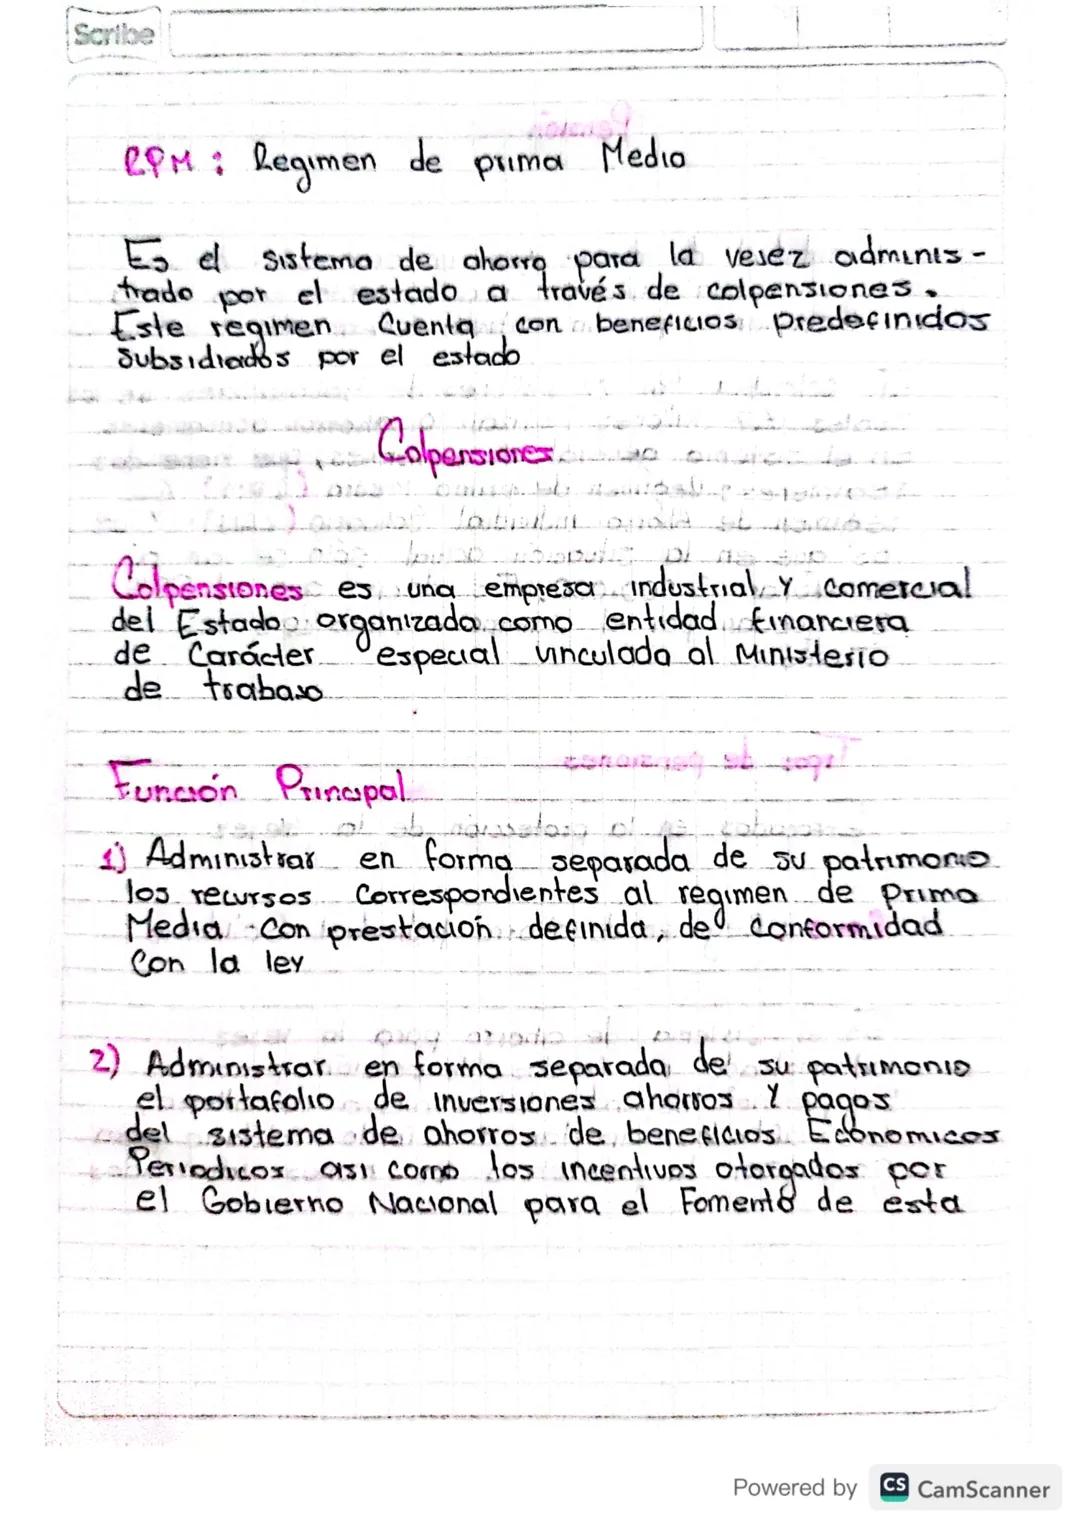 Scribe
RPM: Regimen de prima Media
Es el sistema de ahorro para la vesez adminis-
trado por el estado a través de colpensiones.
Este regimen Cuenta con beneficios Predefinidos
Subsidiados por el estado
Colpensiones
Colpensiones es una empresa industrial y comercial
del Estado organizada como entidad financiera
de Carácter especial vinculada al Ministerio
de trabaso
Función Principal
1) Administrar en forma separada de su patrimonio
los recursos Correspondientes al regimen de Prima
Media Con prestación definida, de conformidad
Con la ley
2) Administrar en forma separada de su patrimonio
el portafolio de inversiones ahorros y pagos
del sistema de ahorros de beneficios Economicos
Periodicos asi como los incentivos otorgados por
el Gobierno Nacional para el Fomento de esta
Powered by CS CamScanner